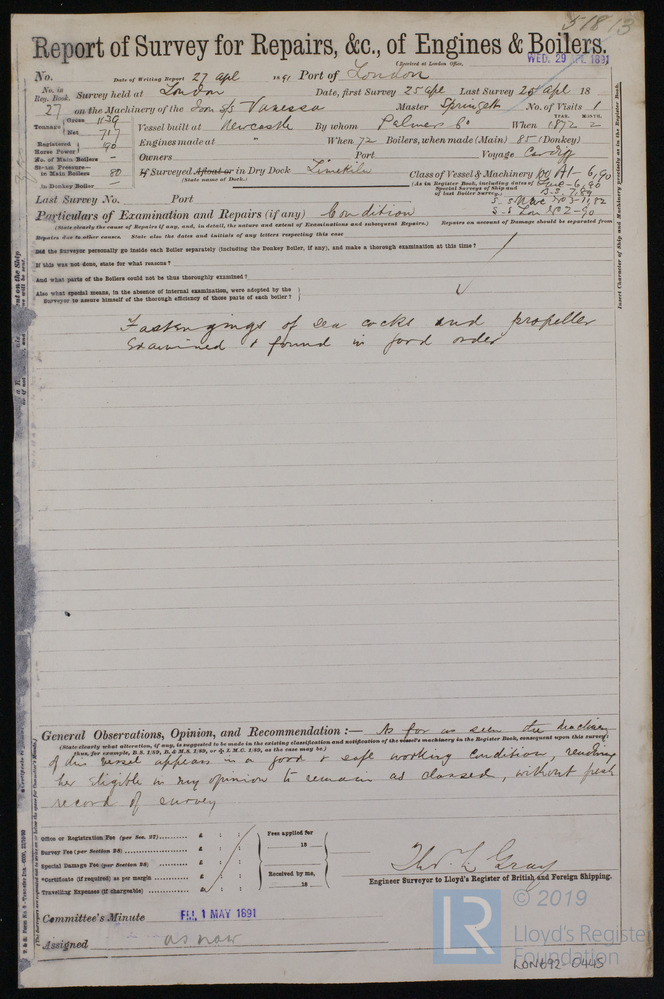 51813
Report of Survey for Repairs, &c., of Engines & Boilers.
(Received at London Office,
WED. 29 APL 1891
No. Date of Writing Report 27 apl 1891 Port of London
No. in Reg. Book. Survey held at London Date, first Survey 25 apl Last Survey 25 apl 18
27 on the Machinery of the Iron s/s Vanessa Master Springett No. of Visits 1
Tonnage { Gross 1139 Net 717 Vessel built at Newcastle By whom Palmers Co When YEAR. 1872 MONTH. 2
Registered Horse Power } 90 Engines made at " When 72 Boilers, when made (Main) 85 (Donkey)
No. of Main Boilers - Owners Port Voyage Cardiff
Steam Pressure— in Main Boilers 80 If Surveyed Afloat or in Dry Dock Limekiln Class of Vessel & Machinery 100 A1 - 6,90
(State name of Dock.) (As in Register Book, including dates of Special Surveys of Ship and of last Boiler Survey.)
in Donkey Boiler - B.S. 7,89
Last Survey No. Port
S.S. Lon No 2-90
Particulars of Examination and Repairs (if any) Condition Repairs on account of Damage should be separated from
(State clearly the cause of Repairs if any, and, in detail, the nature and extent of Examinations and subsequent Repairs.)
Repairs due to other causes. State also the dates and initials of any letters respecting this case
Did the Surveyor personally go inside each Boiler separately (including the Donkey Boiler, if any), and make a thorough examination at this time?
If this was not done, state for what reasons?
And what parts of the Boilers could not be thus thoroughly examined?
Also what special means, in the absence of internal examination, were adopted by the
Surveyor to assure himself of the thorough efficiency of those parts of each boiler?
Fastengings of sea cocks and propeller
Examined & found in good order
General Observations, Opinion, and Recommendation :— As far as seen the machinery
(State clearly what alteration, if any, is suggested to be made in the existing classification and notification of the vessel's machinery in the Register Book, consequent upon this survey:
thus, for example, B.S. 1/89, B. & M.S. 1/89, or L.M.C. 1/89, as the case may be.)
of this vessel appears in a good & safe working condition, rendering
her eligible in my opinion to remain as classed, without fresh
record of survey
Office or Registration Fee (per Sec. 27) £ : : Fees applied for
Survey Fee (per Section 28) £ : : 18
Special Damage Fee (per Section 28) £ : :
*Certificate (if required) as per margin £ : : Received by me,
Travelling Expenses (if chargeable) £ : : 18
Thos. L Gray
Engineer Surveyor to Lloyd's Register of British and Foreign Shipping.
Committee's Minute FRI. 1 MAY 1891
Assigned as now
Insert Character of Ship and Machinery precisely as in the Register Book.
LR
© 2019
Lloyd's Register
Foundation
LON692-0445